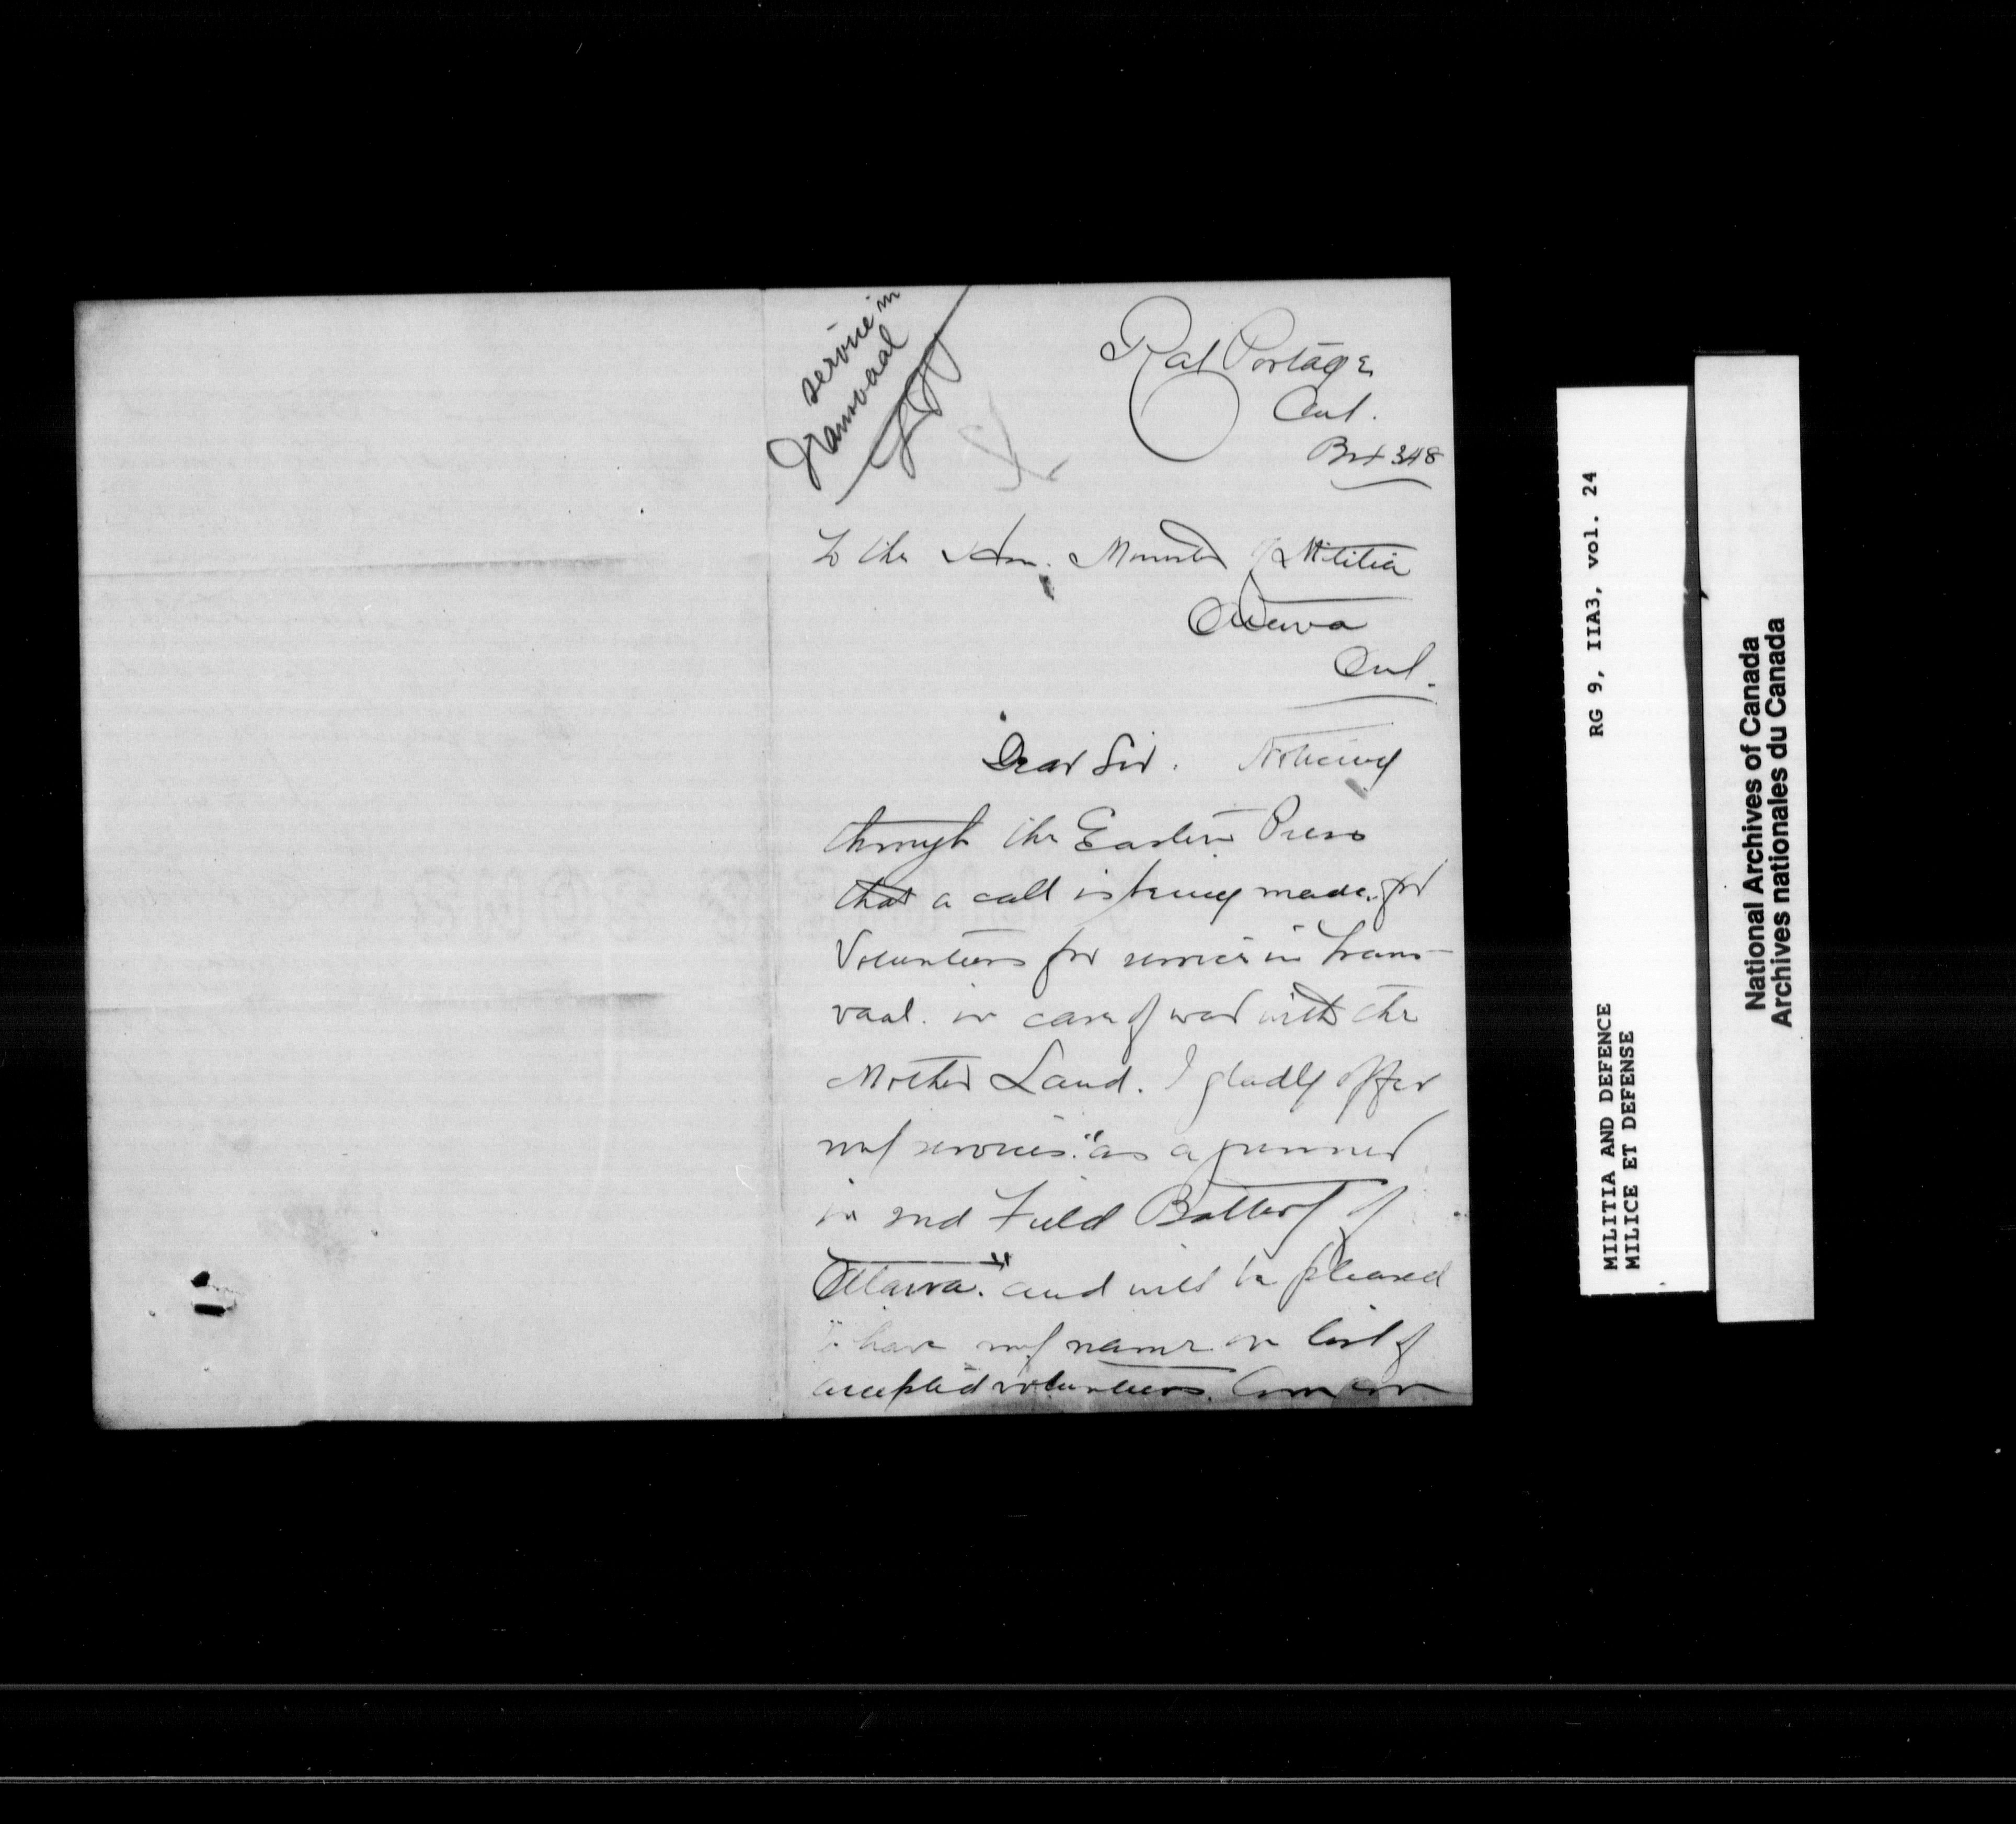 service in
Transvaal
Rat Portage
Ont.
Box 348
To the Hon. Minister of Militia
Ottawa
Ont.
Dear Sir. Noticing
through the Eastern Press
that a call is being made for
Volunteers for service in Trans-
vaal. in case of war with the
Mother Land. I gladly offer
my services. "as a gunner
in 2nd Field Battery of
Ottawa." and will be pleased
to have my name on list of
accepted volunteers. Am an
RG 9, IIA3, vol. 24
MILITIA AND DEFENCE
MILICE ET DEFENSE
National Archives of Canada
Archives nationales du Canada